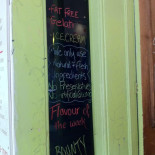 FAT FREE
Gelati
ICE CREAM
We only use
natural & fresh
ingredients
No Preservatives
Flavour
of
the week
BOUNTY